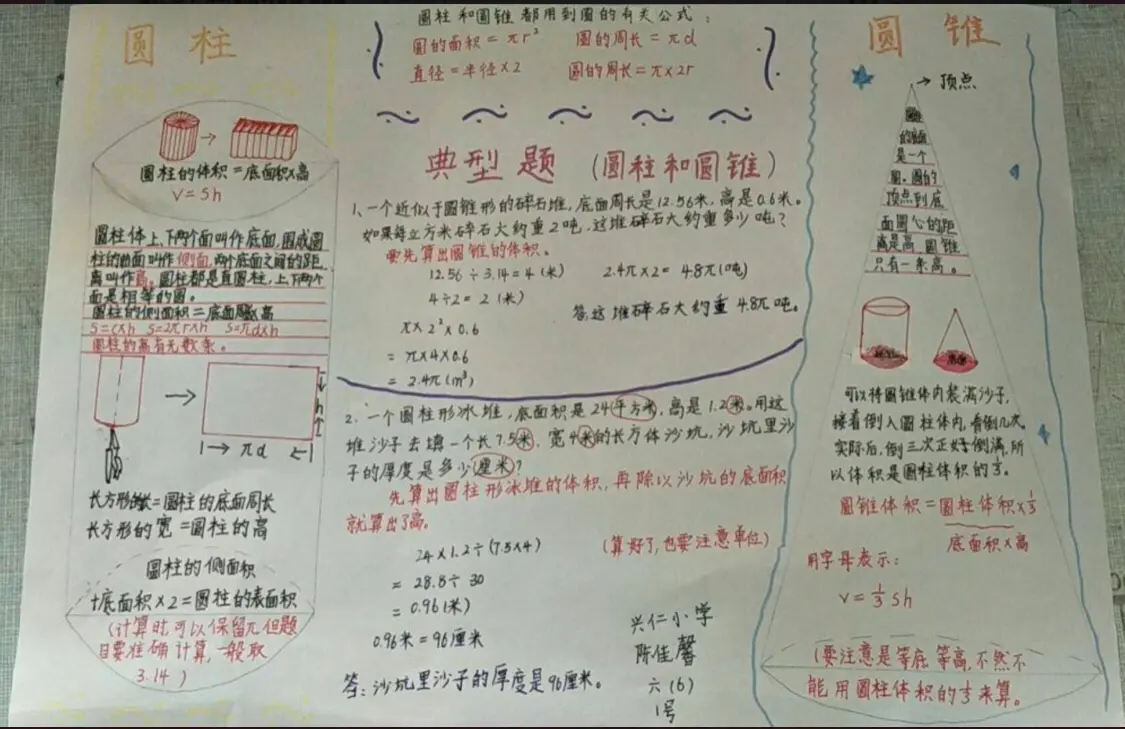 圆柱
圆柱的体积=底面积×高
V=Sh
圆柱体上、下两个面叫作底面,围成圆
柱的曲面叫作侧面,两个底面之间的距
离叫作高。圆柱都是直圆柱,上下两个
面是相等的圆。
圆柱的侧面积=底面周长×高
S=C×h S=2πr×h S=πd×h
圆柱的高有无数条。
h
πd
长方形的长=圆柱的底面周长
长方形的宽=圆柱的高
圆柱的侧面积
+底面积×2=圆柱的表面积
(计算时,可以保留π但题
目要准确计算,一般取
3.14)
圆柱和圆锥都用到圆的有关公式:
圆的面积=πr² 圆的周长=πd
直径=半径×2 圆的周长=π×2r
典型题(圆柱和圆锥)
1、一个近似于圆锥形的碎石堆,底面周长是12.56米,高是0.6米。
如果每立方米碎石大约重2吨,这堆碎石大约重多少吨?
要先算出圆锥的体积。
12.56÷3.14=4(米) 2.4π×2=4.8π(吨)
4÷2=2(米)
答:这堆碎石大约重4.8π吨。
π×2²×0.6
=π×4×0.6
=2.4π(m³)
2.一个圆柱形冰堆,底面积是24平方米,高是1.2米。用这
堆沙子去填一个长7.5米,宽4米的长方体沙坑,沙坑里沙
子的厚度是多少厘米?
先算出圆柱形冰堆的体积,再除以沙坑的底面积
就算出了高。
24×1.2÷(7.5×4) (算好了,也要注意单位)
=28.8÷30
=0.96(米)
0.96米=96厘米
答:沙坑里沙子的厚度是96厘米。
兴仁小学
陈佳馨
六(6)
1号
圆锥
顶点
圆锥
的底面
是一个
圆。圆的
顶点到底
面圆心的距
离是高 圆锥
只有一条高。
可以将圆锥体内装满沙子,
接着倒入圆柱体内,看倒几次。
实际后,倒三次正好倒满,所
以体积是圆柱体积的⅓。
圆锥体积=圆柱体积×⅓
底面积×高
用字母表示:
V=⅓Sh
(要注意是等底等高,不然不
能用圆柱体积的⅓来算。